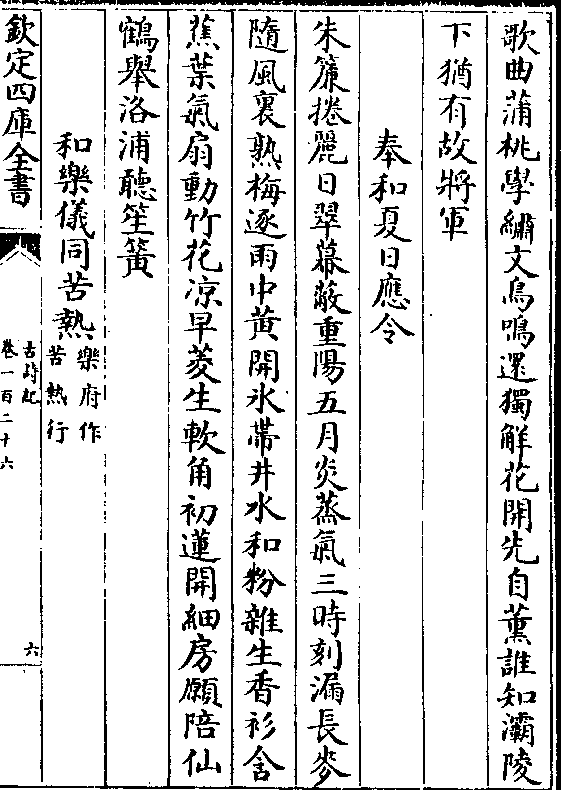 歌曲蒲桃學繡文鳥鳴還獨解花開先自薰誰知灞陵
下猶有故將軍
奉和夏日應令
朱簾捲麗日翠幕蔽重陽五月炎蒸氣三時刻漏長麥
隨風裏熟梅逐雨中黃開氷帶井水和粉雜生香衫含
蕉葉氣扇動竹花凉早菱生軟角初蓮開細房願陪仙
鶴舉洛浦聽笙簧
和樂儀同苦熱
樂府作
苦熱行
欽定四庫全書
古詩紀
卷一百二十六
六